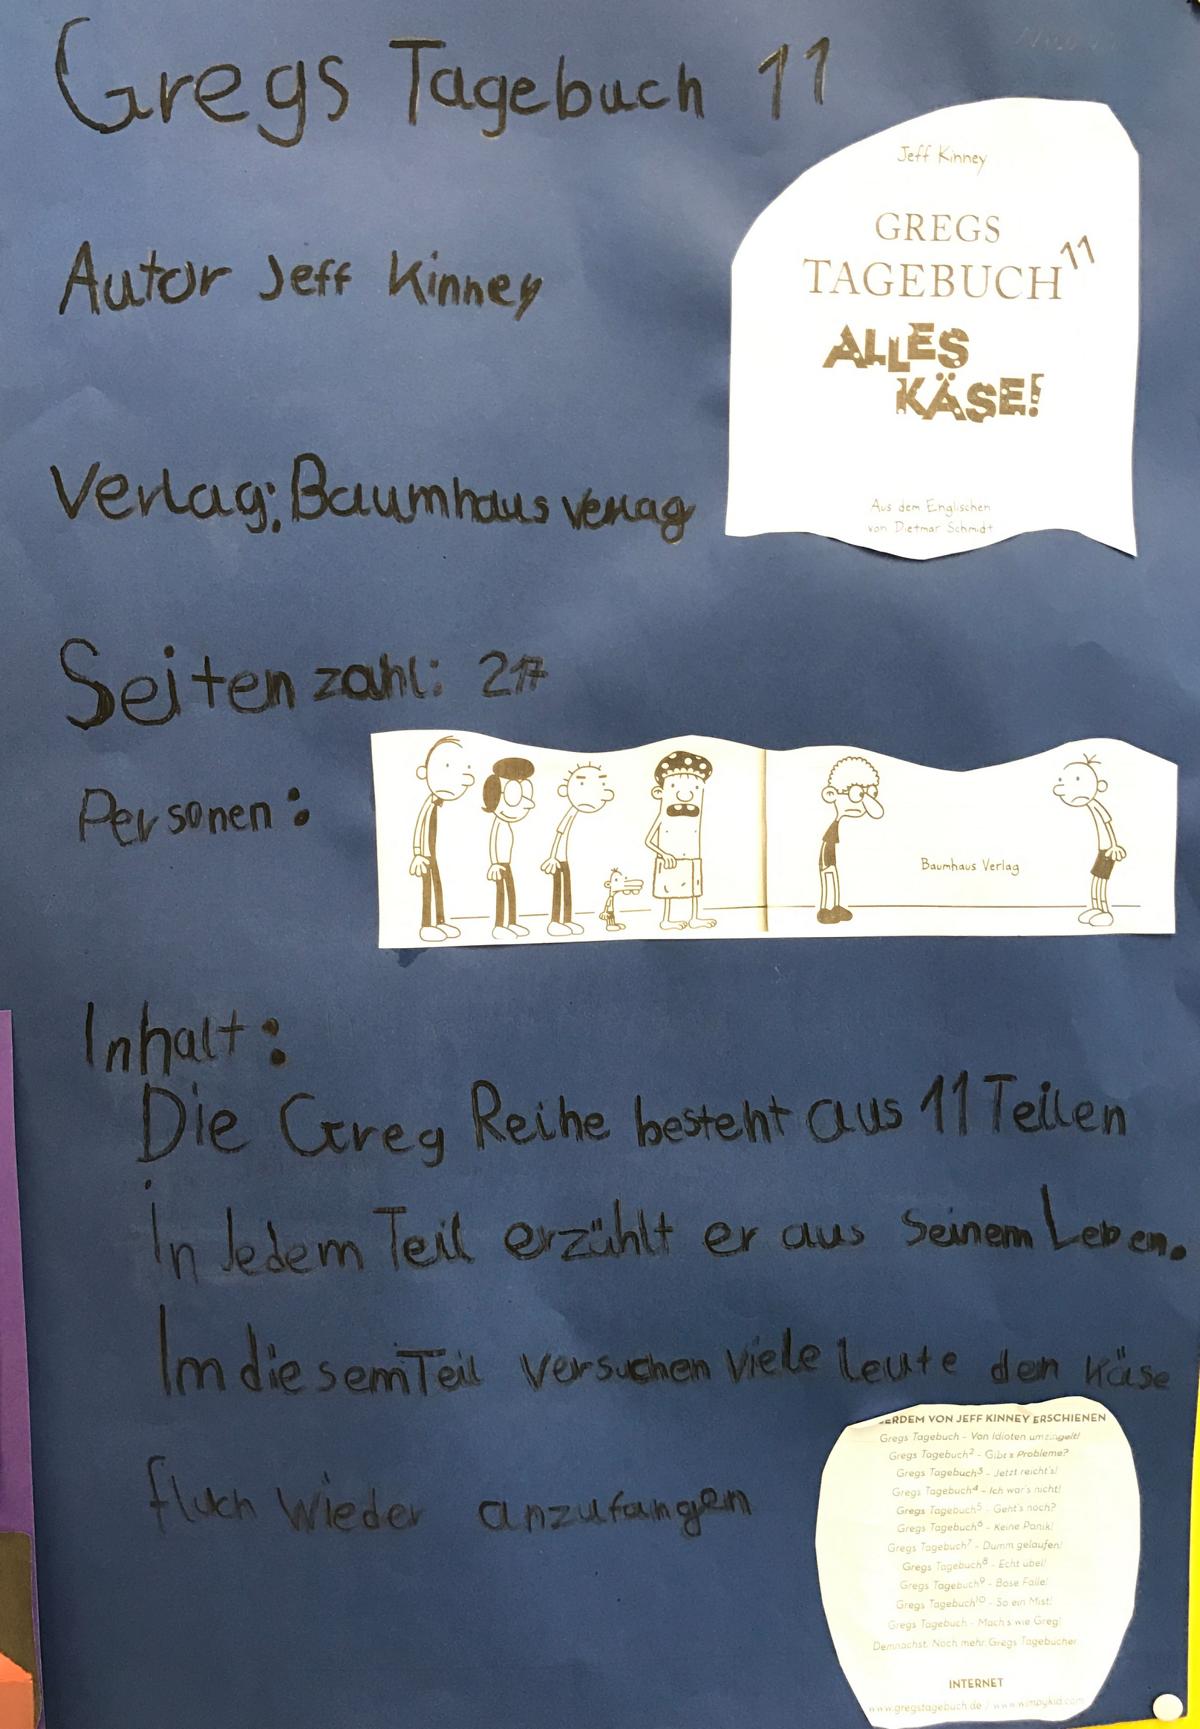 Gregs Tagebuch 11
Jeff Kinney
GREGS
TAGEBUCH 11
ALLES
KÄSE!
Aus dem Englischen
von Dietmar Schmidt
Autor Jeff Kinney
Verlag: Baumhaus verlag
Seiten zahl: 217
Personen:
Baumhaus Verlag
Inhalt:
Die Greg Reihe besteht aus 11 Teilen
in Jedem Teil erzählt er aus seinem Leben.
Im diesem Teil versuchen viele leute den Käse
fluch wieder anzufangen
ERDEM VON JEFF KINNEY ERSCHIENEN
Gregs Tagebuch - Von Idioten umzingelt!
Gregs Tagebuch² - Gibt's Probleme?
Gregs Tagebuch³ - Jetzt reicht's!
Gregs Tagebuch⁴ - Ich war's nicht!
Gregs Tagebuch⁵ - Geht's noch?
Gregs Tagebuch⁶ - Keine Panik!
Gregs Tagebuch⁷ - Dumm gelaufen!
Gregs Tagebuch⁸ - Echt übel!
Gregs Tagebuch⁹ - Böse Falle!
Gregs Tagebuch¹⁰ - So ein Mist!
Gregs Tagebuch - Mach's wie Greg!
Demnächst: Noch mehr Gregs Tagebücher
INTERNET
www.gregstagebuch.de / www.wimpykid.com